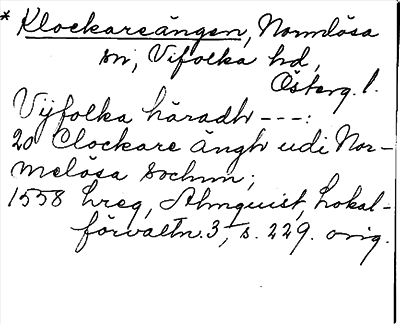 * Klockareängen, Normlösa
sn, Vifolka hd,
Österg. l.
Vijfolka häradh ---:
20 Clockare ängh udi Nor-
melösa sochnn;
1558 Lreg, Almquist, Lokal-
förvaltn. 3, s. 229. orig.